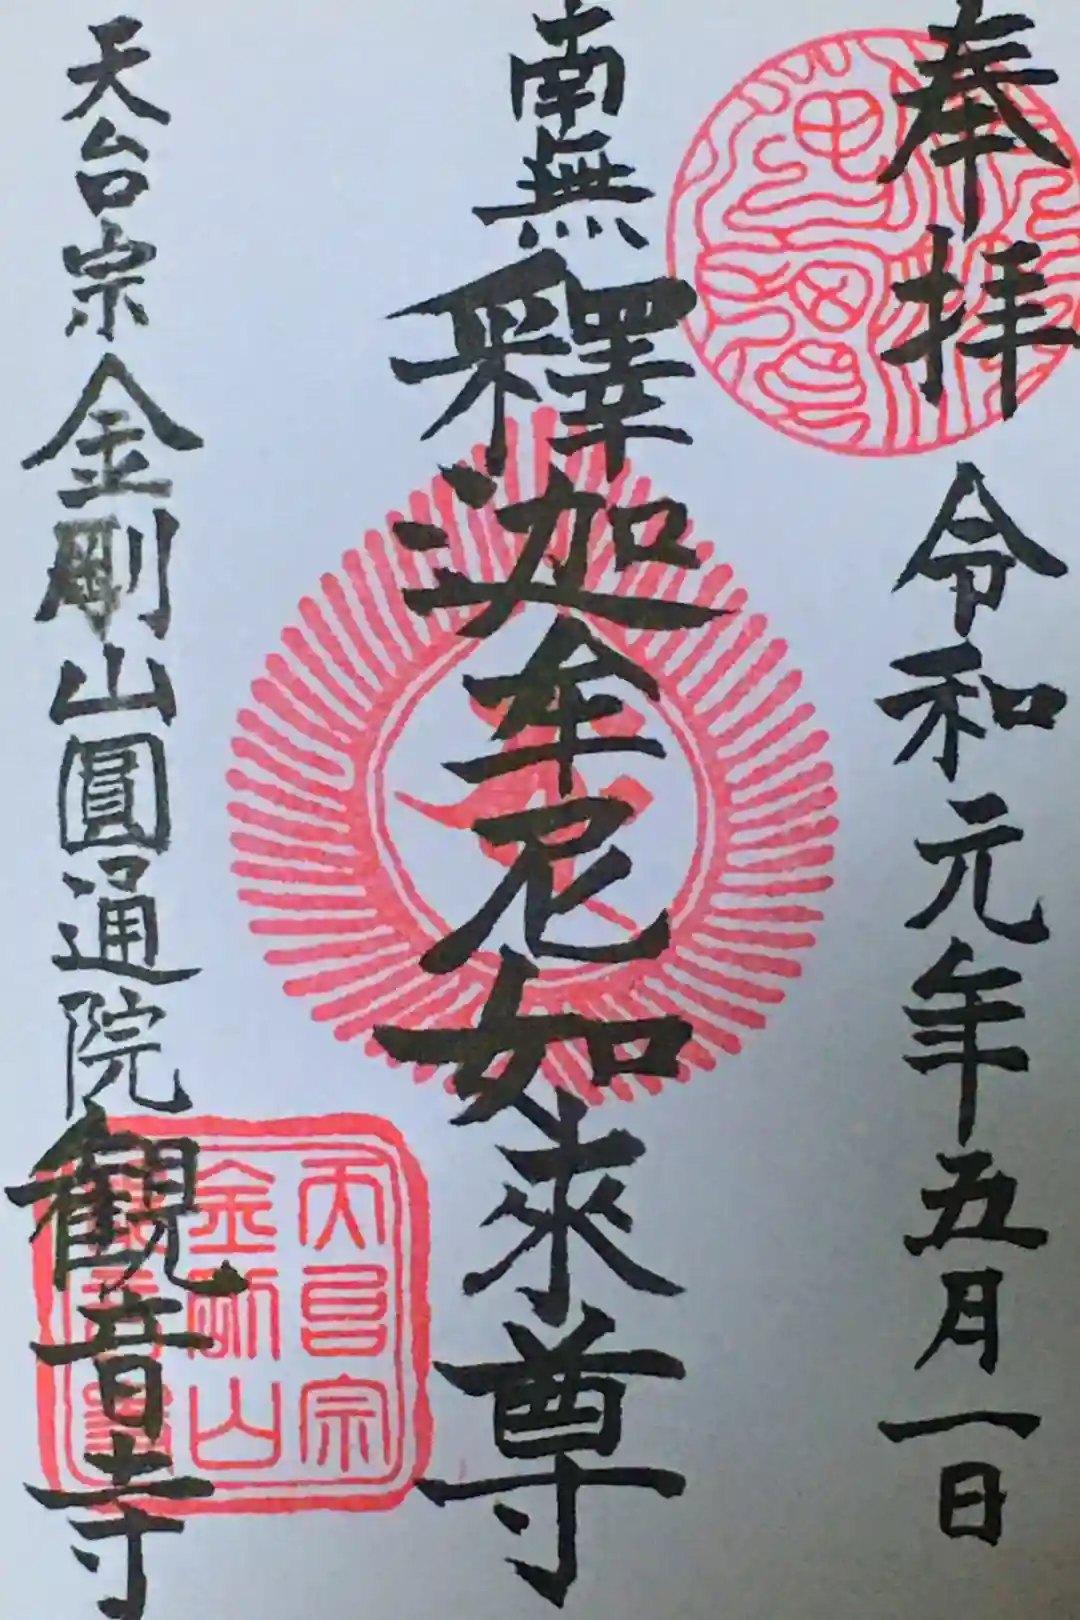 奉拝
令和元年五月一日
南無釋迦牟尼如來尊
天台宗金剛山圓通院観音寺
天台宗
金剛山
観音寺